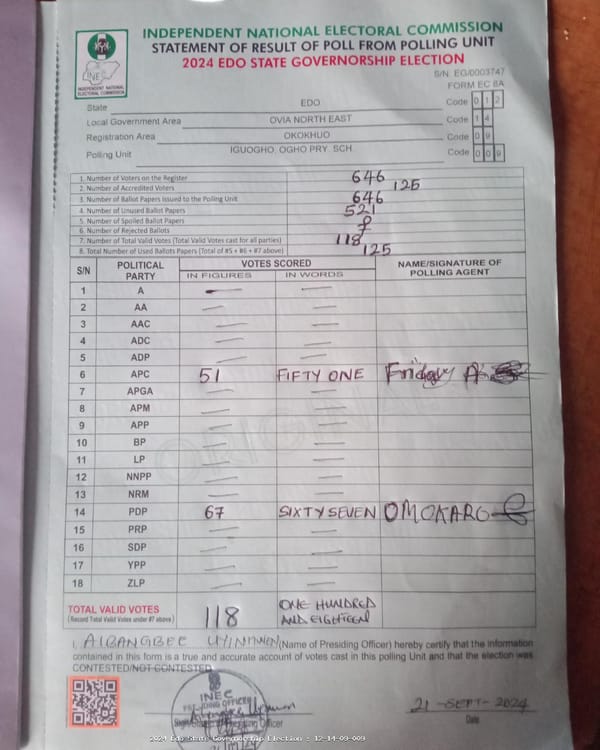 INDEPENDENT NATIONAL ELECTORAL COMMISSION
STATEMENT OF RESULT OF POLL FROM POLLING UNIT
2024 EDO STATE GOVERNORSHIP ELECTION
S/N. EG/0003747
FORM EC 8A
INEC
INDEPENDENT NATIONAL ELECTORAL COMMISSION
State EDO Code 0 1 2
Local Government Area OVIA NORTH EAST Code 1 4
Registration Area OKOKHUO Code 0 9
Polling Unit IGUOGHO, OGHO PRY. SCH. Code 0 0 9
1. Number of Voters on the Register 646
2. Number of Accredited Voters 125
3. Number of Ballot Papers Issued to the Polling Unit 646
4. Number of Unused Ballot Papers 521
5. Number of Spoiled Ballot Papers
6. Number of Rejected Ballots 7
7. Number of Total Valid Votes (Total Valid Votes cast for all parties) 118
8. Total Number of Used Ballots Papers (Total of #5 + #6 + #7 above) 125
S/N POLITICAL PARTY VOTES SCORED NAME/SIGNATURE OF POLLING AGENT
IN FIGURES IN WORDS
1 A — —
2 AA — —
3 AAC — —
4 ADC — —
5 ADP — —
6 APC 51 FIFTY ONE Friday A
7 APGA — —
8 APM — —
9 APP — —
10 BP — —
11 LP — —
12 NNPP — —
13 NRM — —
14 PDP 67 SIXTY SEVEN OMOKARO
15 PRP — —
16 SDP — —
17 YPP — —
18 ZLP — —
TOTAL VALID VOTES 118 ONE HUNDRED AND EIGHTEEN
(Record Total Valid Votes under #7 above)
I, AIBANGBEE UYINMWEN (Name of Presiding Officer) hereby certify that the information
contained in this form is a true and accurate account of votes cast in this polling Unit and that the election was
CONTESTED/NOT CONTESTED
INEC
PRESIDING OFFICER
21-SEPT-2024
Date
2024 Edo State Governorship Election : 12-14-09-009